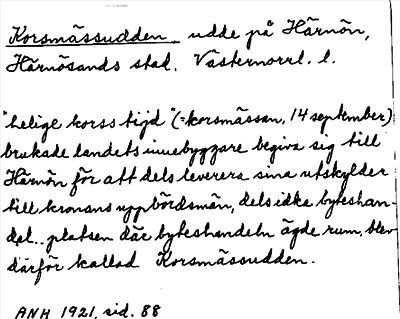 Korsmässudden udde på Härnön,
Härnösands stad. Västernorrl. l.
"helige korss tijd" (=korsmässan, 14 september)
brukade landets innebyggare begiva sig till
Härnön för att dels leverera sina utskylder
till kronans uppbördsmän, dels idka byteshan-
del.. platsen där byteshandeln ägde rum, blev
därför kallad Korsmässudden.
ANH 1921, sid. 88